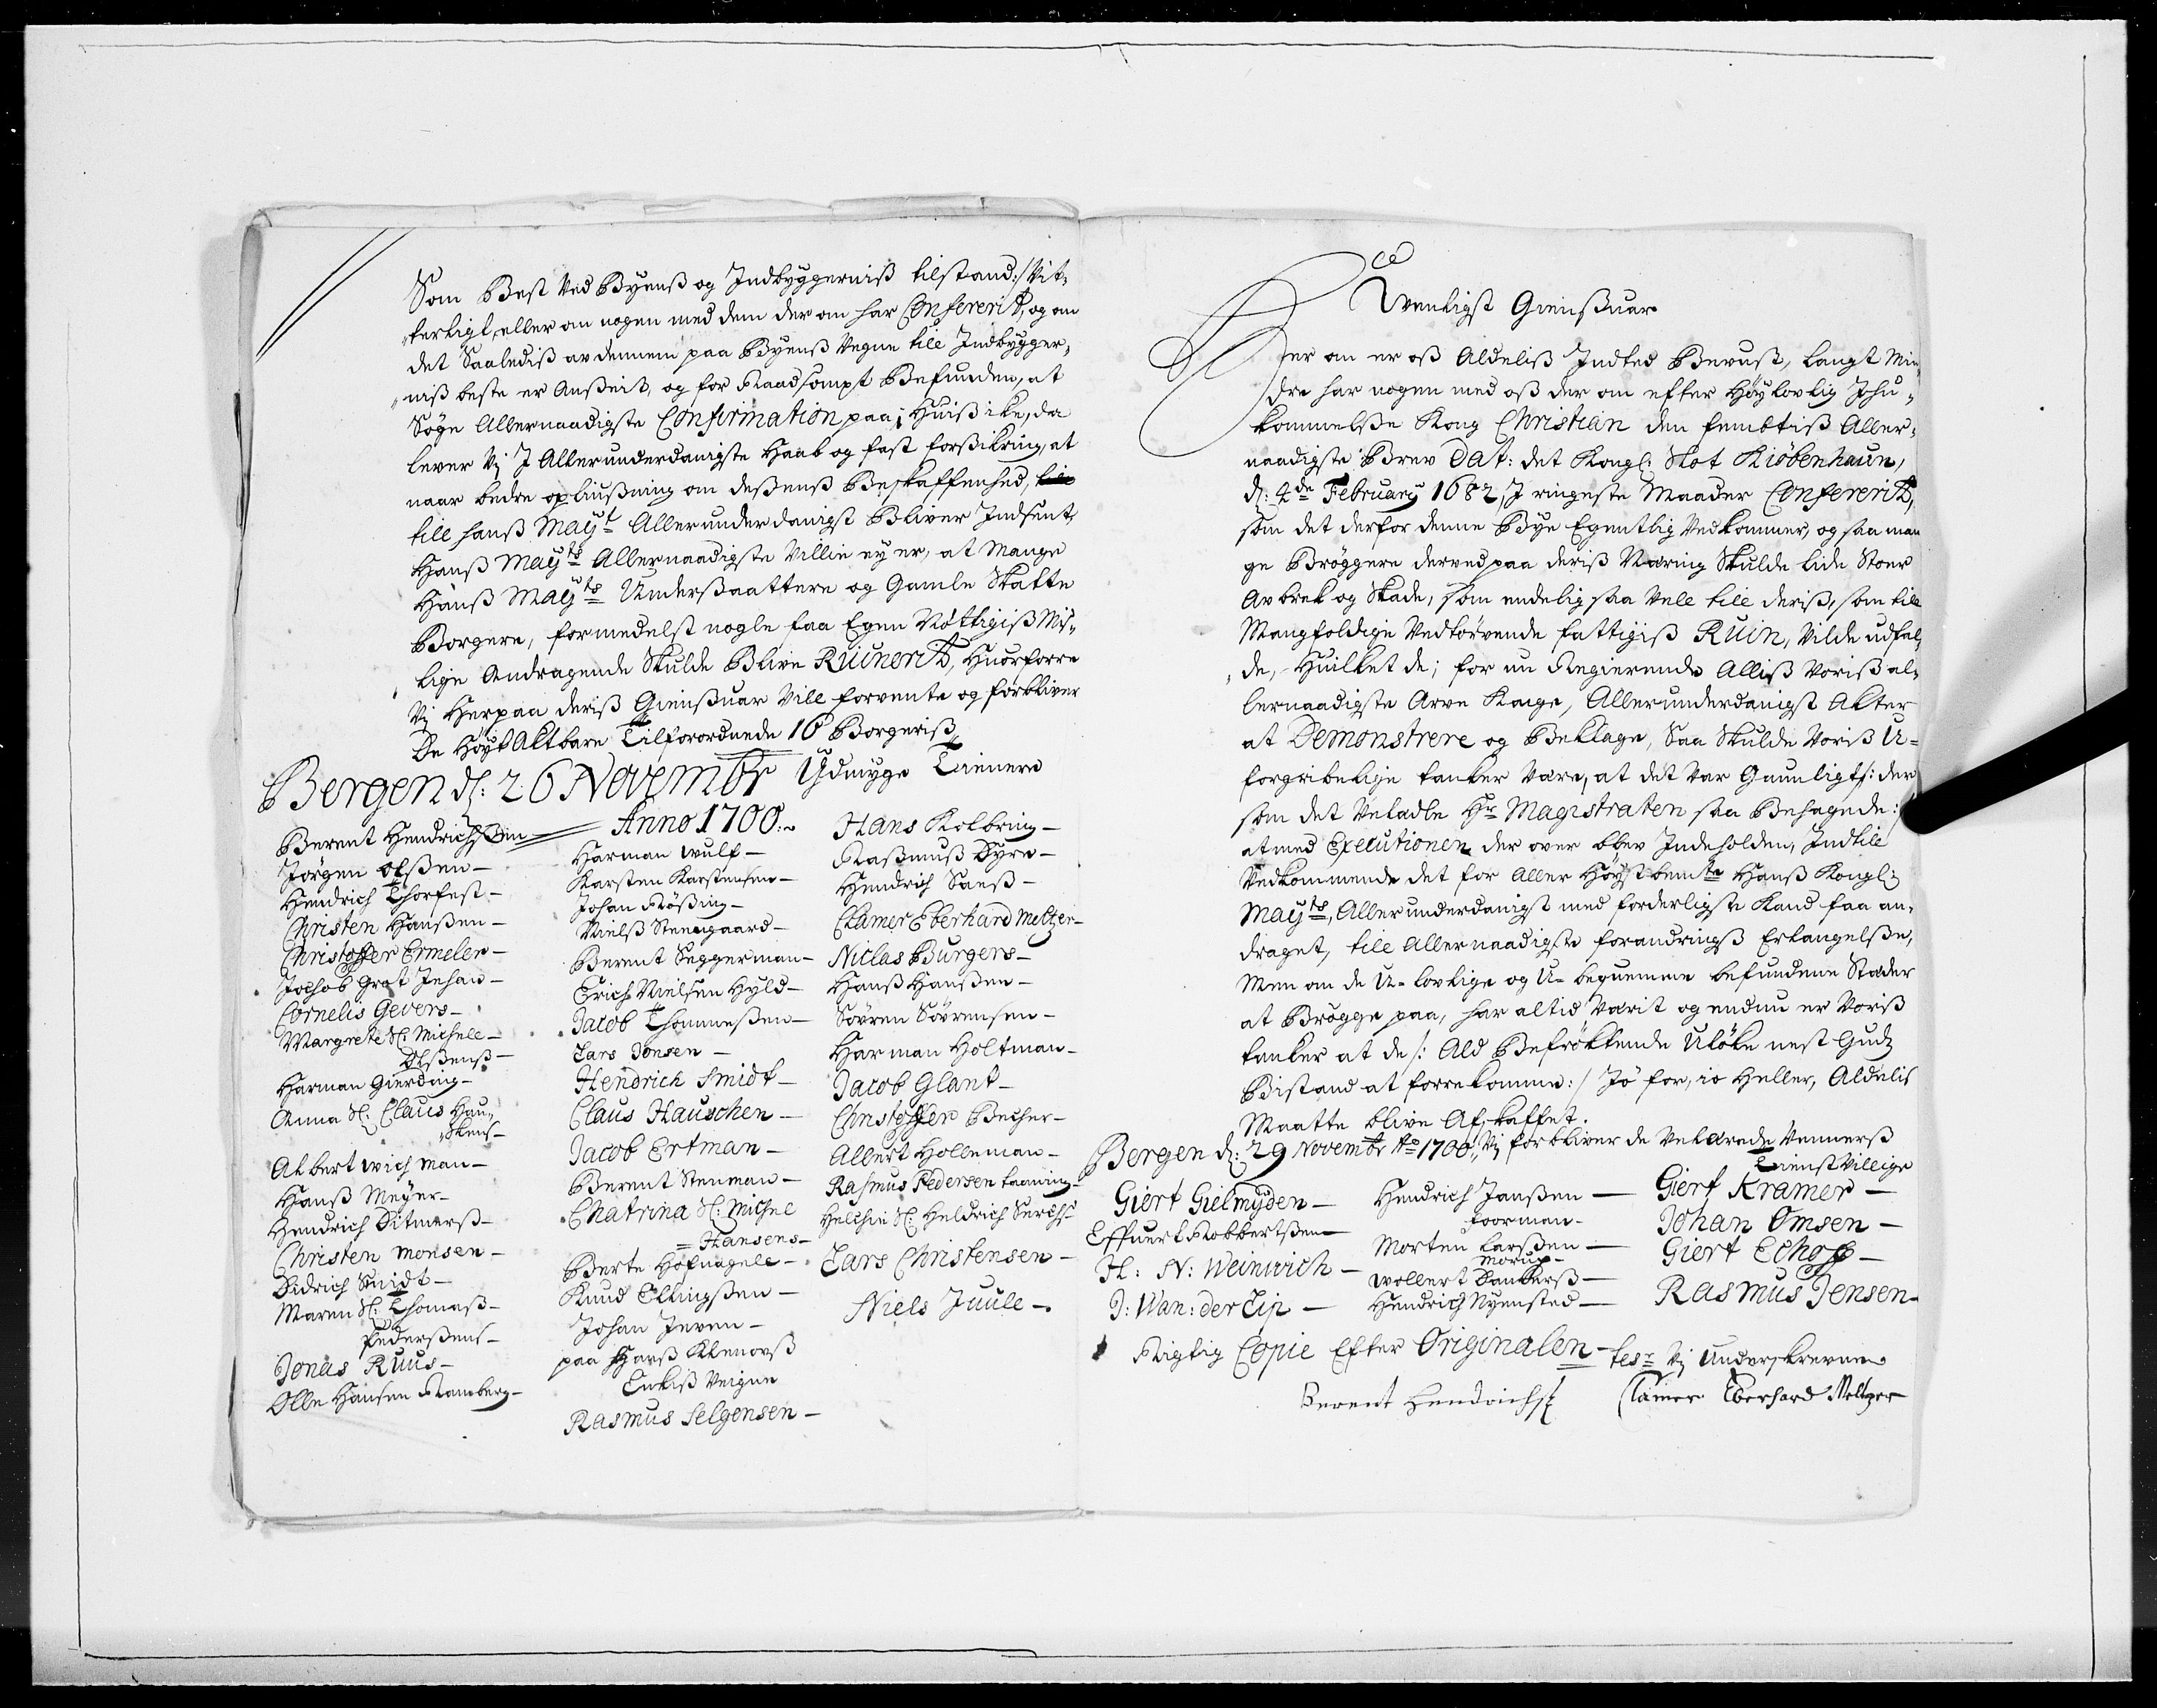 Som Best Ved Byenß og Indbyggerniß tilstand :/ Vit-
terligt, eller om nogen med dem der om har Confererit, og om
det Saalediß av dennem paa Byenß Vegne till Indbygger-
niß beste er Anseit, og for Raadsompt Befunden, at
Søge Allernaadigste Confirmation paa; Huiß ike, da
lever Vj I Allerunderdanigste Haab og fast forsikring, at
naar bedre opliusning om deßenß Beskaffenhed,
till hanß Mayt Allerunderdanigst Bliver Indsent,
Hanß Mayts Allernaadigste Villie ey er, at Mange
Hanß Mayts Undersaattere og Gamle Skatte
Borgere, formedelst nogle faa Egen Nøttigiß
lige Andragende Skulde Blive Ruinerit, Huorforre
Vj Herpaa deriß Giensuar Vill forvente og forbliver
De Høyt Aktbare Tilforordnede 16 Borgeriß
Bergen d: 26 Novembr Ydmyge Tienere
Anno 1700
Berent Hendrichßen
Jørgen olßen
Hendrich Thorfest
Christen Hanßen
Christoffer Ermeler
Jochob Grot Jehan
Cornelis Gevers
Margrete Sl: Michell
Olßenß
Harman Gierding
Anna Sl: Claus Hau-
skens
Albert wichman
Hanß Meyer
Hendrich Ditmerß
Christen Monsen
Didrich Smidt
Maren Sl: Thomaß
Pederßens
Jonas Ruus
Olle Hansen Ramberg
Harman wulf
Karsten Karstensen
Johan Røßing
Nielß Steengaard
Berent Seggerman
Erich Nielsen Hyld
Jacob Thommeßen
Lars Jonsen
Hendrich Smidt
Claus Hauschen
Jacob Ertman
Berent Stenman
Chatrina Sl: Michel
Hansens
Berte Hofnagell
Knud Ellingßen
Johan Jeven
paa Harß Klenovß
Enkiß Veigne
Rasmus Selgensen
Hans Kolbring
Rasmuß Dyre
Hendrich Sanß
Clamer Eberhard Meltzer
Niclas Burgers
Hanß Hanßen
Søvren Søvrensen
Harman Holtman
Jacob Glant
Christoffer Becher
Albert Holleman
Rasmus Pedersen
Helchie Sl: Heldrich
Lars Christensen
Niels Juule
Wenligst Giensuar
Her om er oß Aldeliß Indted Bevust, langt Min-
dre har nogen med oß der om efter Høylovlig Ihu-
kommelse Kong Christian den femtiß Aller-
naadigste Brev Dat: det Kongl: Slot Kiøbenhaun,
d: 4de February 1682, I ringeste Maader Confererit,
som det derfor denne Bye Egentlig Vedkommer, og saa man
ge Brøggere derved paa deriß Næring Skulde lide Stoer
Avbrek og Skade, som endelig saa Vell till deriß, som till
Mangfoldige Vedtørvende fattigiß Ruin, Vilde udfal-
de, Huilket de; for nu Regierende Alliß Voriß al-
lernaadigste Arve Konge, Allerunderdanigst Akter
at Demonstrere og Beklage, Saa Skulde Voriß U-
forgribelige tanker Være, at det Var Gaunligt /: der
som det Veladle Hr Magistraten saa Behagede :/
at med Executionen der over blev Indeholden, Indtill
Vedkommende det for Aller Høyst bemte Hanß Kongl:
Mayts, Allerunderdanigst med forderligste Kand faa an-
draget, till Allernaadigste forandringß Erlangelße,
Men om de U-lovlige og U-bequemme befundene Stæder
at Brøgge paa, har altid Værit og endnu er Voriß
tanker at de /: Ald Befrøktende Uløke nest Gudz
Bistand at forrekomme :/ Jo før, io Heller, Aldelis
Maatte blive Afskaffet.
Bergen d: 29 Novembr Ao 1700, Vj forbliver de Velærede Venners
Tienst Villige
Giert Gielmyden
Effuert Robbertßen
H: N: Weinwich
J: Wan: der Lip
Hendrich Janßen
foorman
Morten Larßen
Morup
wollert Danckerß
Hendrich Nyensted
Giert Kramer
Johan Omsen
Giert Echoff
Rasmus Jensen
Rigtig Copie Efter Originalen tesr Vj Underskrevne
Berent Hendrichsß Clamer Eberhard Meltzer